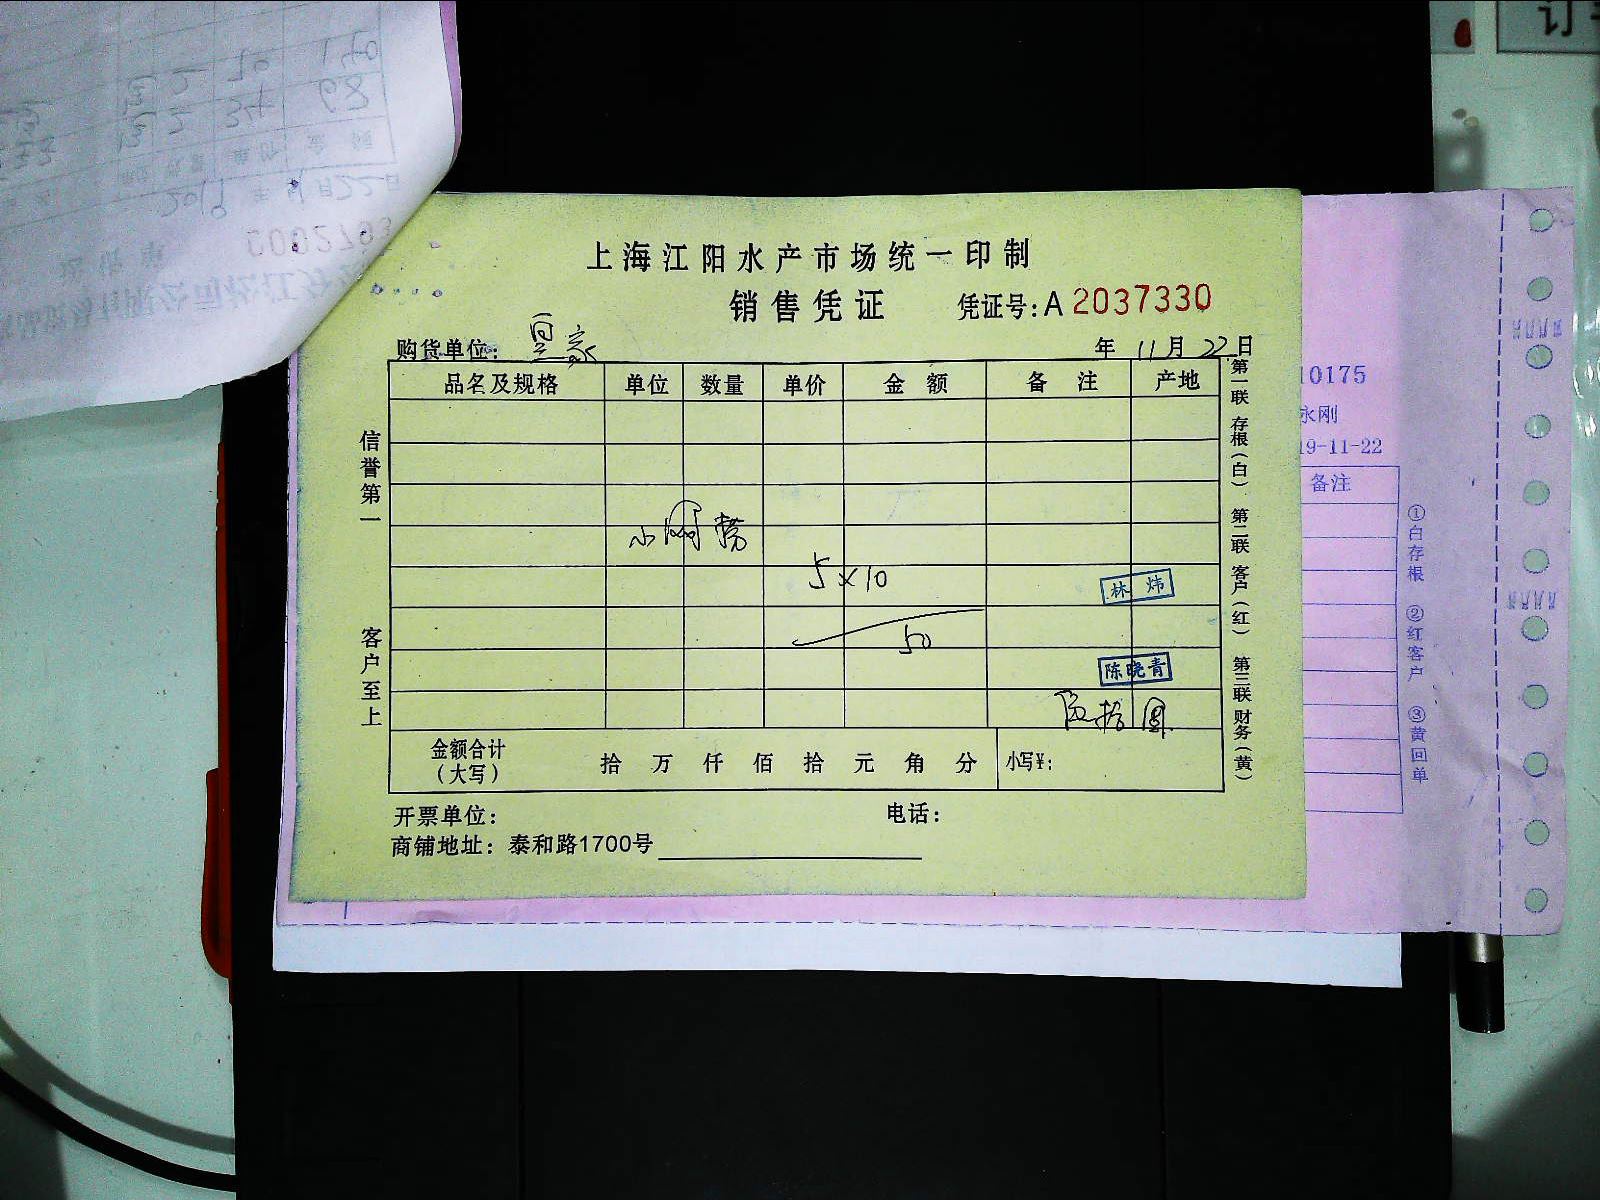 订
上海江阳水产市场统一印制
销售凭证 凭证号:A 2037330
购货单位: 皇家 年 11 月 22 日
品名及规格 单位 数量 单价 金额 备注 产地
小网捞
5×10
林炜
50
陈晓青
伍拾圆
金额合计(大写) 拾 万 仟 佰 拾 元 角 分 小写¥:
开票单位: 电话:
商铺地址: 泰和路1700号
信誉第一 客户至上
第一联 存根(白) 第二联 客户(红) 第三联 财务(黄)
10175
永刚
19-11-22
备注
①白存根 ②红客户 ③黄回单
0002793
2019 年 11 月 22 日
单价 金额
2 34 68
2 70 140